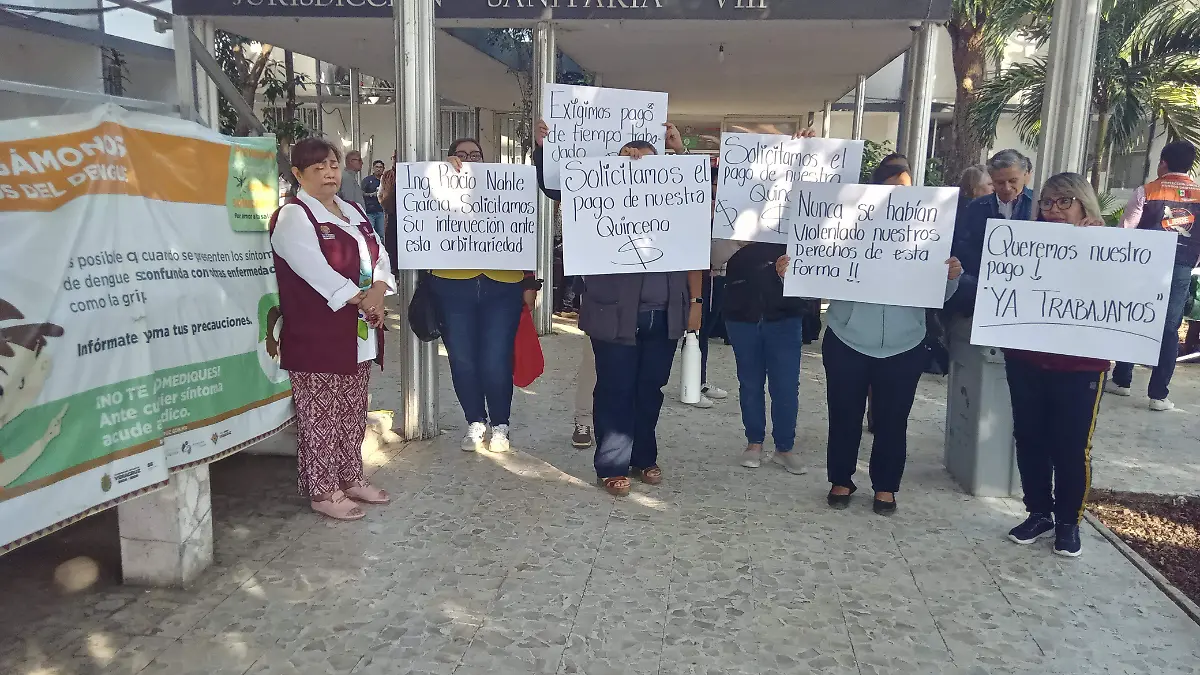 JURISDICCIÓN SANITARIA VIII
Exigimos pago
de tiempo traba
jado
Ing. Rocío Nahle
García. Solicitamos
Su intervención ante
esta arbitriaredad
Solicitamos el
pago de nuestra
Quincena
$
Solicitamos el
pago de nuestra
Quince
$ $
Nunca se habían
Violentado nuestros
Derechos de esta
forma !!
Queremos nuestro
pago !
"YA TRABAJAMOS"
GÁMONOS
S DEL DENGUE
posible q cuando se presenten los síntom
de dengue se confunda con otras enfermeda
como la grip
Infórmate y toma tus precauciones.
¡NO TE MEDIQUES!
Ante cu er síntoma
acude dico.